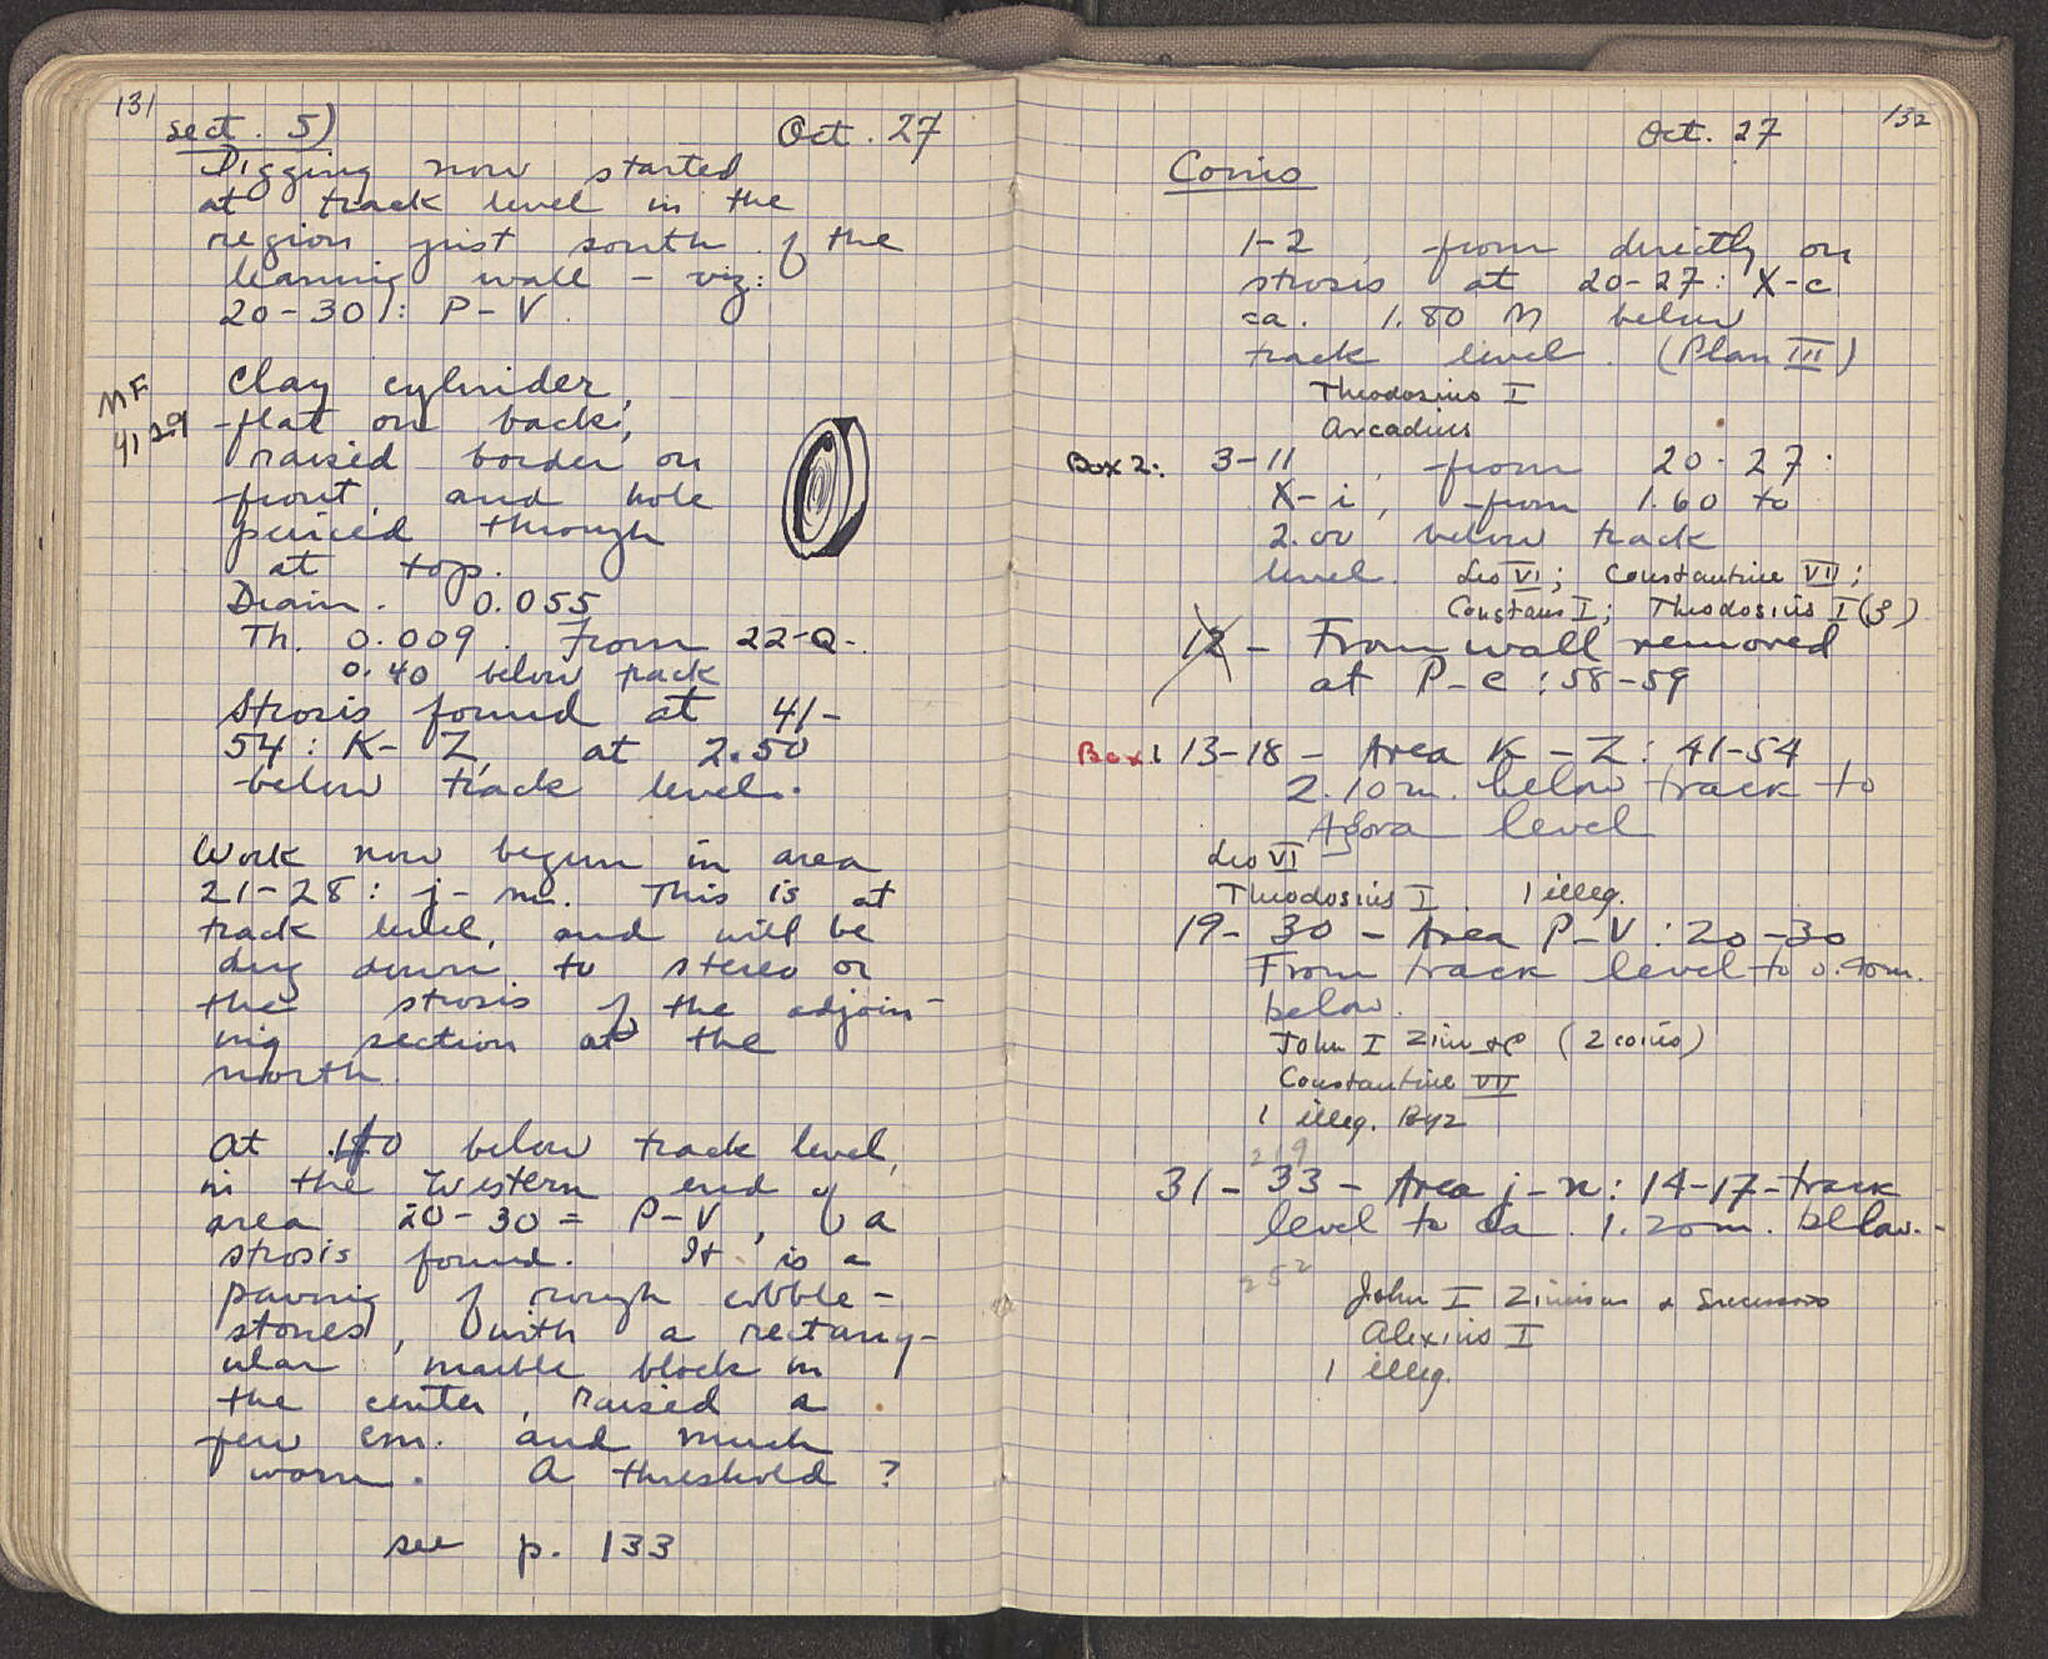 131
sect. 5) Oct. 27
Digging now started
at track level in the
region just south of the
leaning wall - viz:
20-30: P-V.
MF
4129
Clay cylinder,
flat on back,
raised border on
front, and hole
pierced through
at top.
Diam. 0.055
Th. 0.009. From 22-Q-
0.40 below track
Strosis found at 41-
54: K-Z, at 2.50
below track level.
Work now begun in area
21-28: j-m. This is at
track level, and will be
dug down to stereo or
the strosis of the adjoin-
ing section at the
north.
At below track level,
in the Western end of
area 20-30 = P-V, of a
strosis found. It is a
paving of rough cobble-
stones, with a rectang-
ular marble block in
the center, raised a
few cm. and much
worn. A threshold?
see p. 133
132
Oct. 27
Coins
1-2, from directly on
strosis at 20-27: X-c
ca. 1.80 m below
track level. (Plan III)
Theodosius I
Arcadius
Box 2: 3-11, from 20-27:
X-i, from 1.60 to
2.00 below track
level. Leo VI; Constantine VII;
Constans I; Theodosius I (3)
12 - From wall removed
at P-e: 58-59
Box 1 13-18 - Area K-Z: 41-54
2.10 m. below track to
Agora level
Leo VI
Theodosius I. 1 illeg.
19-30 - Area P-V: 20-30
From track level to 0.90m.
below.
John I Zim (2 coins)
Constantine VII
1 illeg. Byz
219
31-33 - Area j-n: 14-17-track
level to ca. 1.20m. below.-
252
John I Zimisces & Successors
Alexius I
1 illeg.